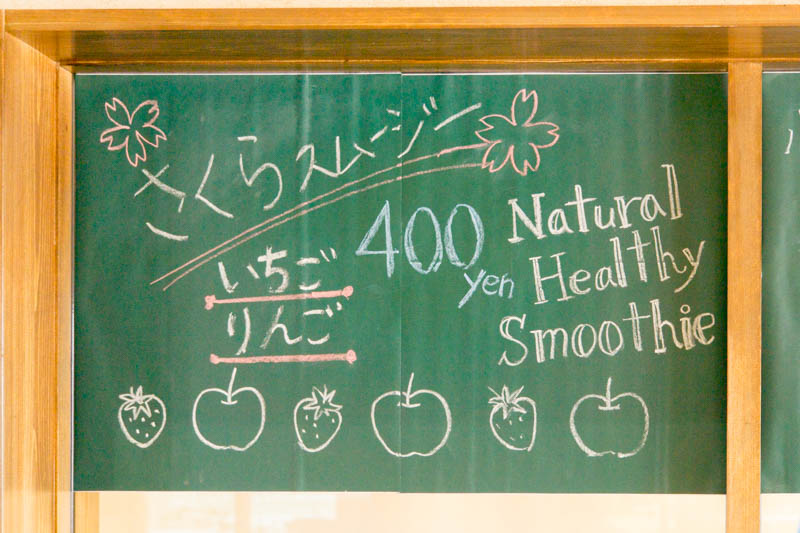 さくらスムージー
いちご
りんご
400 yen
Natural
Healthy
Smoothie